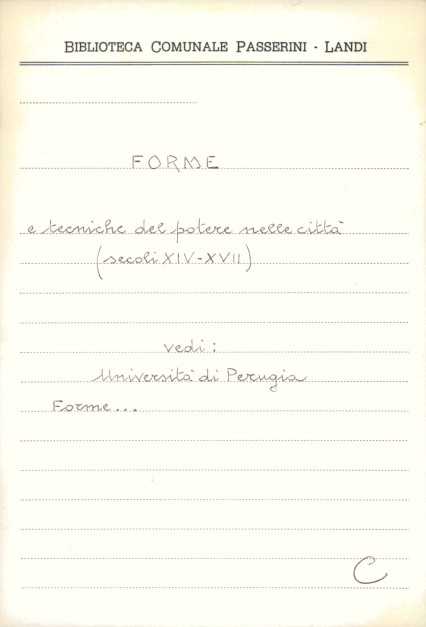 BIBLIOTECA COMUNALE PASSERINI - LANDI
FORME
e tecniche del potere nelle città
(secoli XIV-XVII)
vedi:
Università di Perugia
Forme...
C